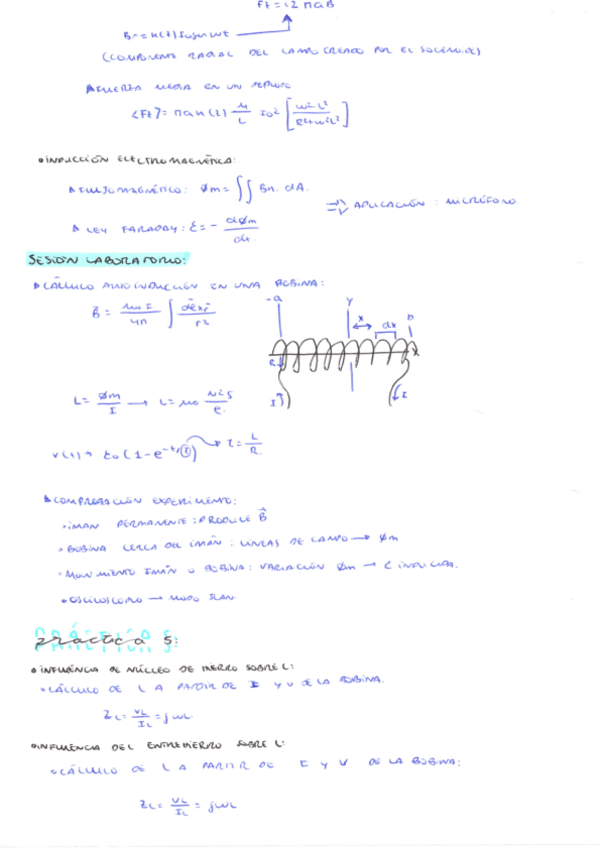 Fz = i2πaB
Br = -k(z)I₀ sen wt
(COMPONENTE RADIAL DEL CAMPO CREADO POR EL SOLENOIDE)
FUERZA MEDIA EN UN PERIODO
<Fz> = πak(z) M/L I₀² [w²L²/R²+w²L²]
• INDUCCIÓN ELECTROMAGNÉTICA:
FLUJO MAGNÉTICO: Øm = ∬ Bn. dA.
⇒ APLICACIÓN: MICRÓFONO
LEY FARADAY: ε = - dØm/dt.
SESIÓN LABORATORIO:
CÁLCULO AUTOINDUCCIÓN EN UNA BOBINA:
-a Y b
x dx
X
R
I I
L = Øm/I → L = μ₀ N²S/e.
(1-e^-t/τ) → τ = L/R.
COMPROBACIÓN EXPERIMENTO:
• IMAN PERMANENTE: PRODUCE B⃗
• BOBINA CERCA DEL IMÁN: LINEAS DE CAMPO → Øm
• MOVIMIENTO IMÁN O BOBINA: VARIACIÓN Øm → ε INDUCIDA.
• OSCILOSCOPIO → MODO SCAN
PRÁCTICA 5:
• INFLUENCIA DE NÚCLEO DE HIERRO SOBRE L:
• CÁLCULO DE L A PARTIR DE I Y V DE LA BOBINA.
ZL = VL/IL = jwL
• INFLUENCIA DEL ENTREHIERRO SOBRE L:
• CÁLCULO DE L A PARTIR DE I Y V DE LA BOBINA:
ZL = VL/IL = jwL